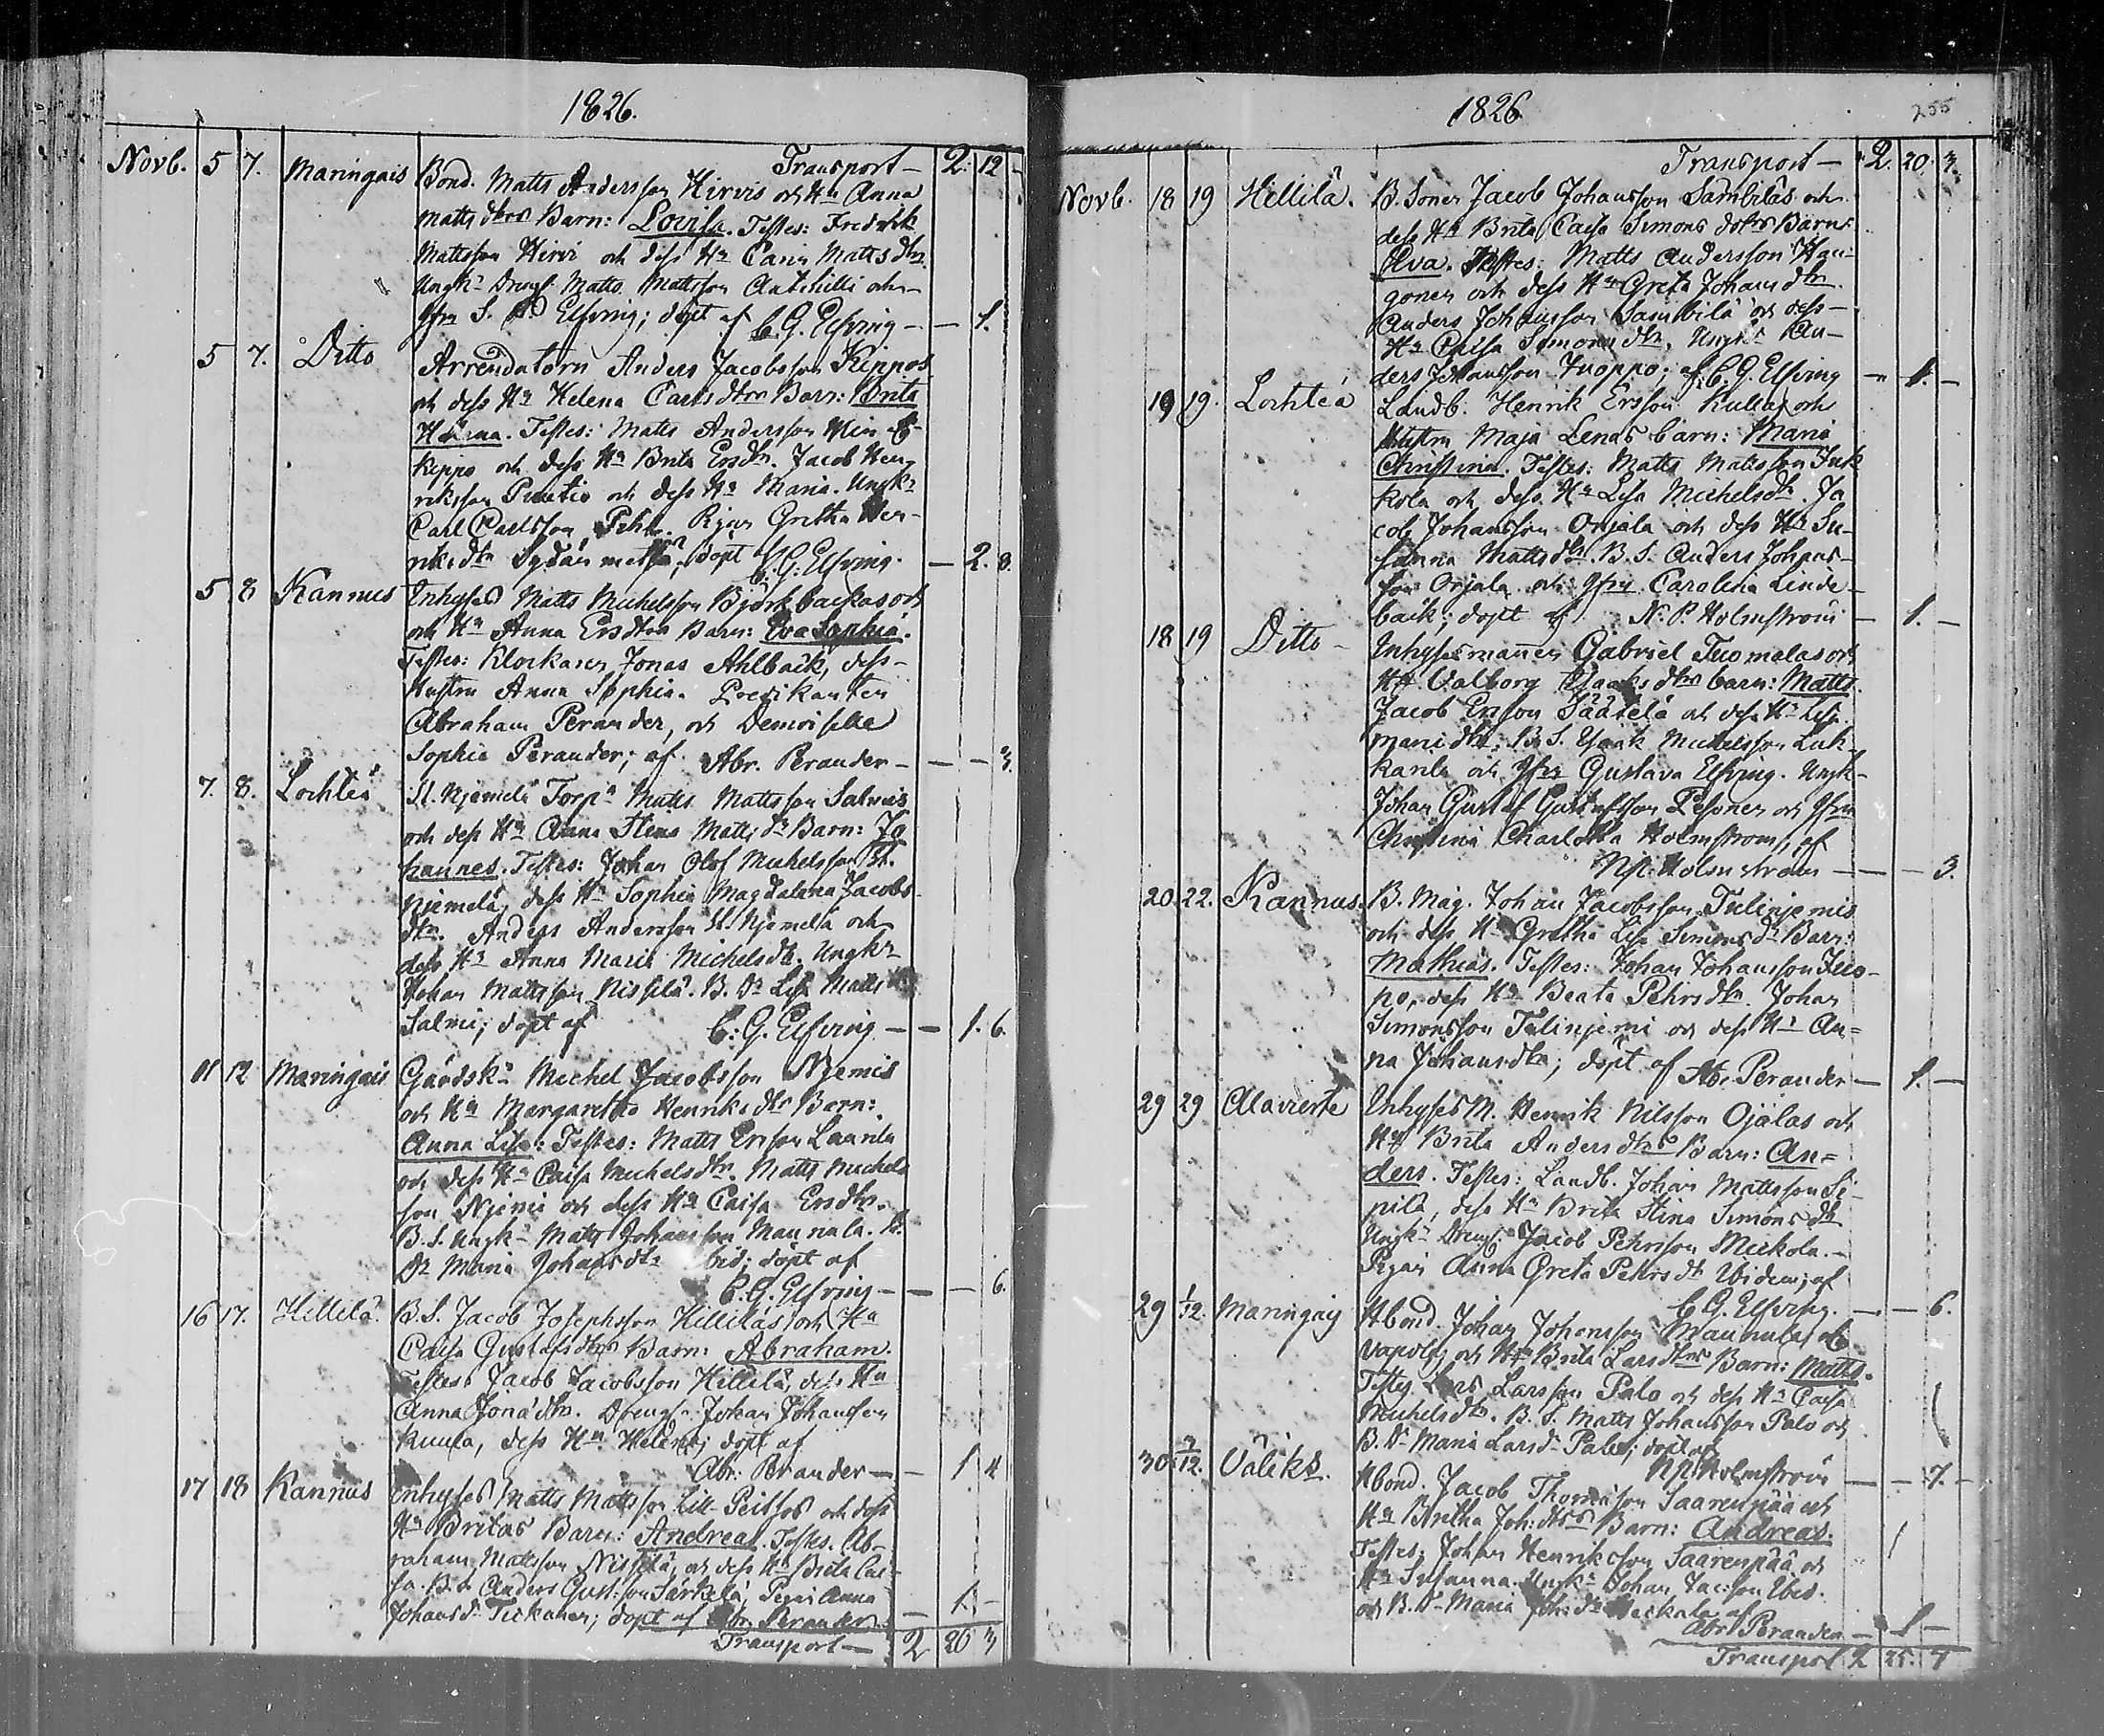 1826.
Transport — 2. 12 -
Novb. 5 7. Maringais Bond. Matts Andersson Hirvis och Hu Anna
Matts dtrs Barn: Lovisa. Testes: Fredrik
Mattsson Hirvi och dess Hu Carin Matts dtr.
Ungk: Dreng. Matts Mattsson Antihilli och
Jfru S. Elfving; döpt af C. G. Elfving — — 1.
5 7. Ditto Arrendatorn Anders Jacobsson Keppos
och dess Hu Helena Carls dtrs Barn: Brita
Testes: Matts Andersson
Keppo och dess Hu Brita Ersdtr. Jacob Hen-
riksson och dess Hu Maria. Ungk:
Carl Carlsson Pigan Gretha Hen-
riks dtr döpt C. G. Elfving. — 2. 8.
5 8 Kannus Inhyses Matts Michelsson Björkbackas och
och Hu Anna Ersdtrs Barn: Eva Sophia.
Testes: Klockaren Jonas Ahlbäck, dess
Hustru Anna Sophia. Predikanten
Abraham Perander, och Demoiselle
Sophia Perander; af Abr. Perander — — — 3.
7. 8. Lochteå Njemelä Torp: Matts Mattsson Salmis
och dess Hu Anna Stina Matts dr Barn: Jo
hannes. Testes: Johan Olof Michelsson St.
Njemelä, dess Hu Sophia Magdalena Jacobs
dtr. Anders Andersson Njemelä och
dess Hu Anna Maria Michelsdtr. Ungk:
Johan Mattsson Nissilä. B. Dr Lisa Matts
Salmi; döpt af C: G. Elfving — — 1. 6.
11 12 Maringais Gårdsk: Michel Jacobsson Njemis
och Hu Margaretha Henriks dtr Barn:
Anna Lisa: Testes: Matts Ersson Laurila
och dess Hu Caisa Michelsdtr. Matts Michels
son Njemi och dess Hu Caisa Ersdtr.
B. S. Ungk: Matts Johansson Mannala. B.
Dr Maria Johansdtr ibid; döpt af
C. G. Elfving — — — 6.
16 17. Hillilä B. S. Jacob Josephsson Hilliläs och Hu
Caisa Gustafsdtrs Barn: Abraham.
Testes: Jacob Jacobsson Hillilä, dess Hu
Anna Jonædtr. Drengen Johan Johansson
dess Hu Helena; döpt af
Abr. Perander — — 1 4
17 18 Kannus Inhyses Matts Mattsson Lill Peitsos och dess
Hu Britas Barn: Andreas. Testes. Ab-
raham Mattsson Nissilä, och dess Hu Brita Cai-
sa. B. S. Anders Gust:son Särkelä, Pigan Anna
Johansdr Tickanen; döpt af Abr. Perander. — 1. —
Transport — 2 20 3
1826
255
Transport — 2. 20. 3.
Novb. 18 19 Hillilä. B. Sonen Jacob Johansson Sämbiläs och
dess Hu Brita Caisa Simons dotrs Barn:
Eva. Testes: Matts Andersson Hau-
gonen och dess Hu Greta Johansdtr.
Anders Johansson Sambilä och dess
Hu Caisa Simonsdtr, Ungk: An-
ders Johansson Juoppo; af C. G. Elfving — 1. —
19 19. Lochteå Landb. Henrik Ersson Kullas och
Hustru Maja Lenas barn: Maria
Christina. Testes: Matts Mattsson Juk
kola och dess Hu Lisa Michelsdtr. Ja
cob Johansson Orjala och dess Hu Su-
sanna Mattsdtr. B. S. Anders Johans-
son Orjala och Jfru Carolina Linde-
bäck; döpt af N. P. Holmström — 1. —
18 19 Ditto — Inhysesmannen Gabriel Tuomalas och
Hu Valborg Isaaksdtrs barn: Matts.
Jacob Ersson Säätelä och dess Hu Lisa
B. S. Isaak Michelsson Luk-
karila och Jfru Gustava Elfving. Ungk:
Johan Gustaf Gustafsson Pesonen och Jfru
Christina Charlotta Holmström, af
Np. Holmström — — — 3.
20. 22. Kannus. B. Måg. Johan Jacobsson Tulinjemis
och dess Hu Gretha Lisa Simonsdr Barn:
Mathias. Testes: Johan Johansson Juo-
po, dess Hu Beata Pehrsdtr. Johan
Simonsson Tulinjemi och dess Hu An=
na Johansdtr; döpt af Abr. Perander — 1. —
29 29 Alavieste Inhyses M. Henrik Nilsson Ojalas och
Hu Brita Andersdtrs Barn: An=
ders. Testes: Landb. Johan Mattsson Si-
pilä, dess Hu Brita Stina Simons dtr
Ungk: Dreng. Jacob Pehrsson Mickola. —
Pigan Anna Greta Pehrsdtr Ibidem; af
C G. Elfving. — — 6.
29 1/12 Maringais Hbond. Johan Johansson Mannulas och
och Hu Brita Larsdtrs Barn: Matts.
Testes Lars Larsson Palo och dess Hu Caisa
Michelsdtr. B. S. Matts Johansson Palo och
B. Dr Maria Larsdr Palo; döpt af
Np. Holmström — — 7. —
30. 3/12. Väliks. Hbond. Jacob Thomasson Saarenpää och
Hu Britha Joh: dtrs Barn: Andreas.
Testes: Johan Henriksson Saarenpää och
Hu Susanna. Ungk: Johan Jac:son Ibid.
och B. Dr Maria Joh: dr af
Abr Perander — 1 —
Transport 2 25. 7